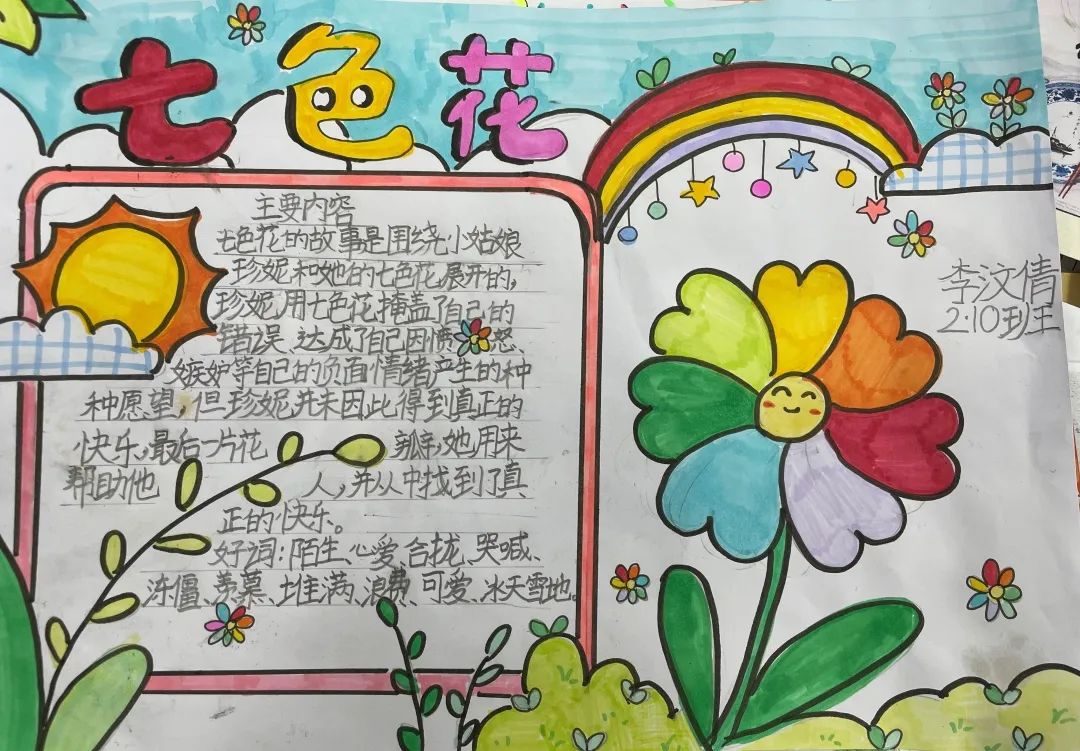 七色花
主要内容
七色花的故事是围绕小姑娘
珍妮和她的七色花展开的,
珍妮用七色花掩盖了自己的
错误、达成了自己因愤怒、
嫉妒等自己的负面情绪产生的种
种愿望,但珍妮并未因此得到真正的
快乐,最后一片花瓣,她用来
帮助他人,并从中找到了真
正的快乐。
好词:陌生、心爱、合拢、哭喊、
冻僵、羡慕、堆满、浪费、可爱、冰天雪地。
李汶倩
2·10班